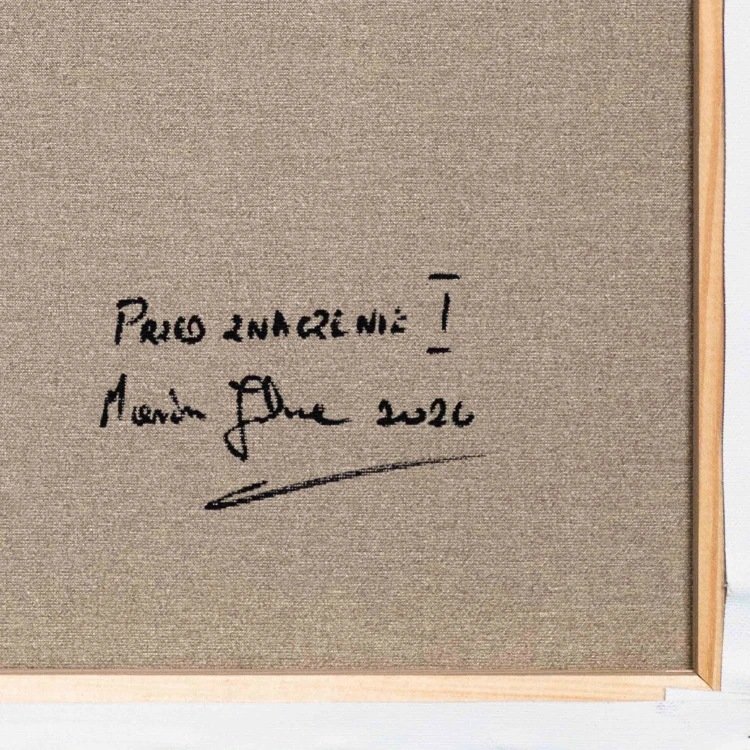 PRZED ZNACZENIE I
Marcin 2026